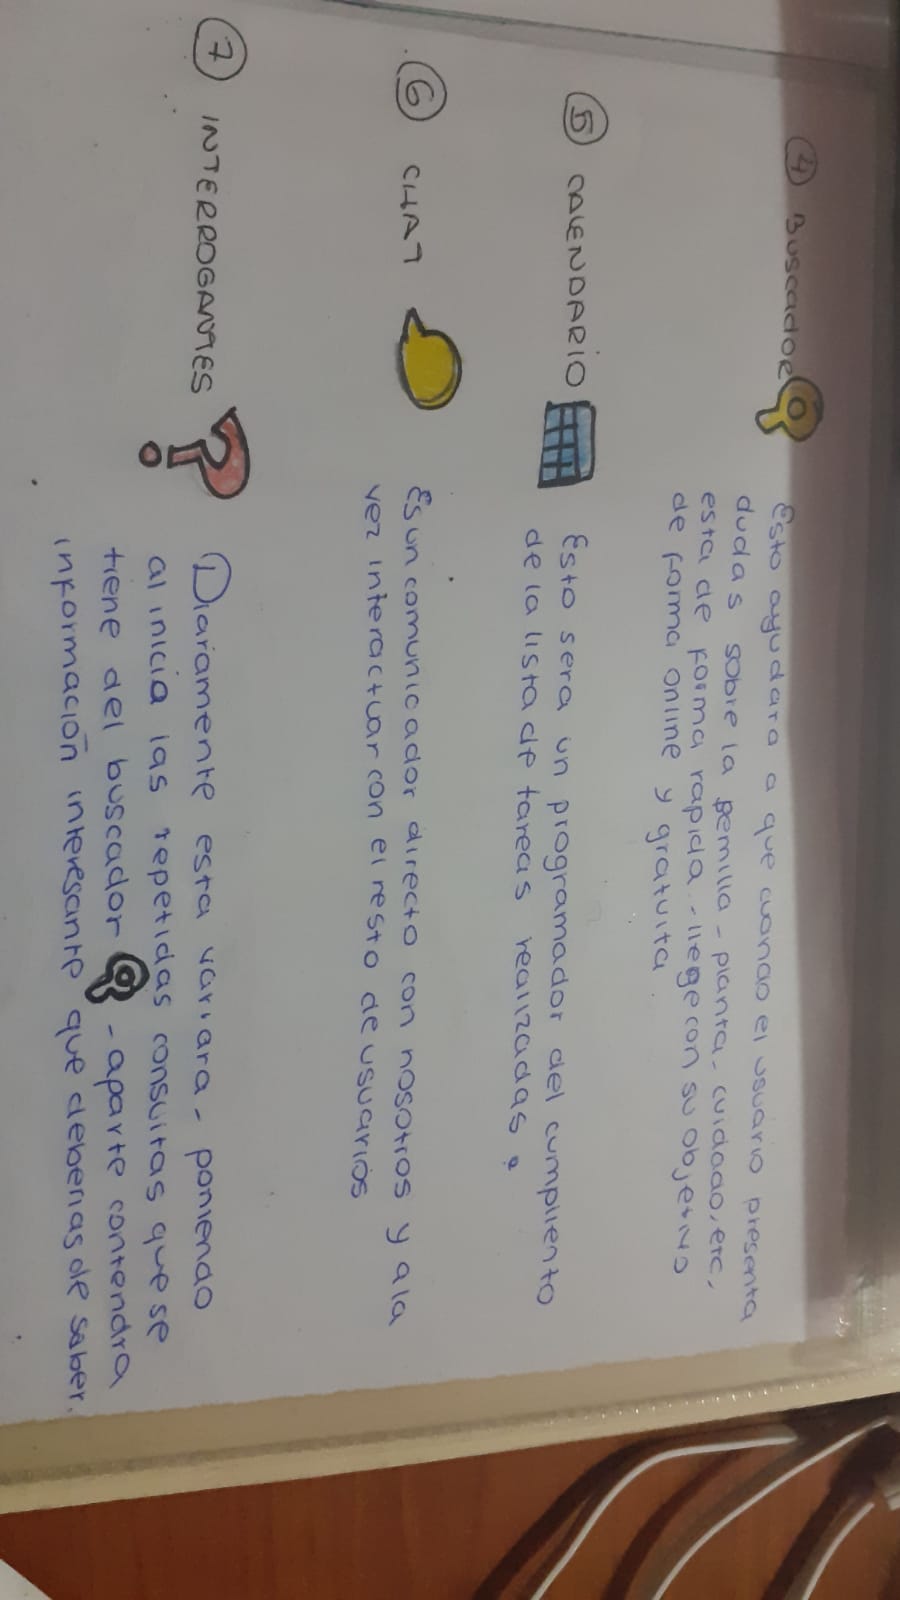 4 BUSCADOR
Esto ayudara a que cuando el usuario presenta
dudas sobre la semilla - planta - cuidado, etc,
esta de forma rapida - llege con su objetivo
de forma online y gratuita.
5 CALENDARIO
Esto sera un programador del cumpliento
de la lista de tareas realizadas.
6 CHAT
Es un comunicador directo con nosotros y a la
vez interactuar con el resto de usuarios
7 INTERROGANTES
Diaramente esta variara - poniendo
al inicia las repetidas consultas que se
tiene del buscador - aparte contendra
información interesante que deberias de saber.